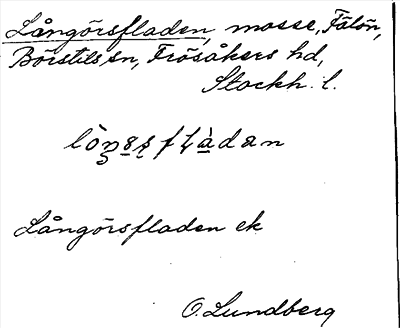 Långörsfladen, mosse, Fälön,
Börstils sn, Frösåkers hd,
Stockh. l.
Långörsfladen ek
O. Lundberg